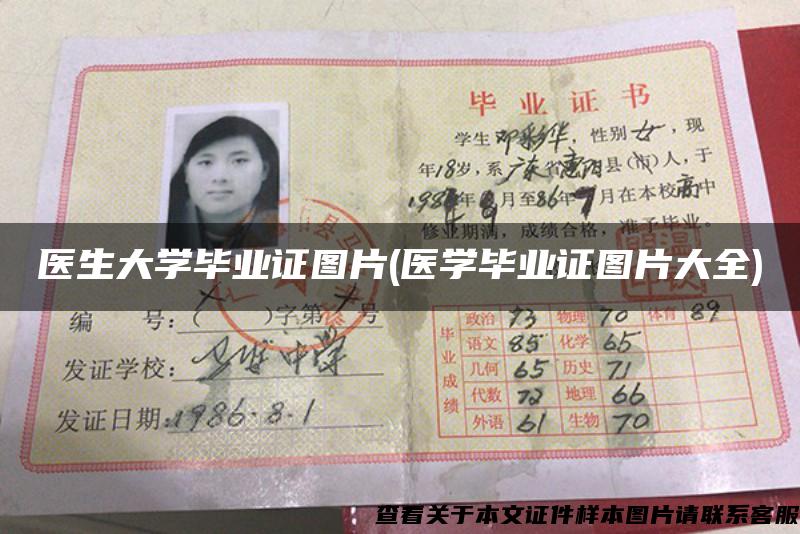 毕业证书
学生邓彩华，性别女，现
年18岁，系广东省惠阳县(市)人，于
月至86年7月在本校高中
修业期满，成绩合格，准予毕业。
医生大学毕业证图片(医学毕业证图片大全)
编 号：( )字第 号
发证学校：中学
发证日期：1986.8.1
毕业成绩
政治 73 物理 70 体育 89
语文 85 化学 65
几何 65 历史 71
代数 72 地理 66
外语 61 生物 70
查看关于本文证件样本图片请联系客服